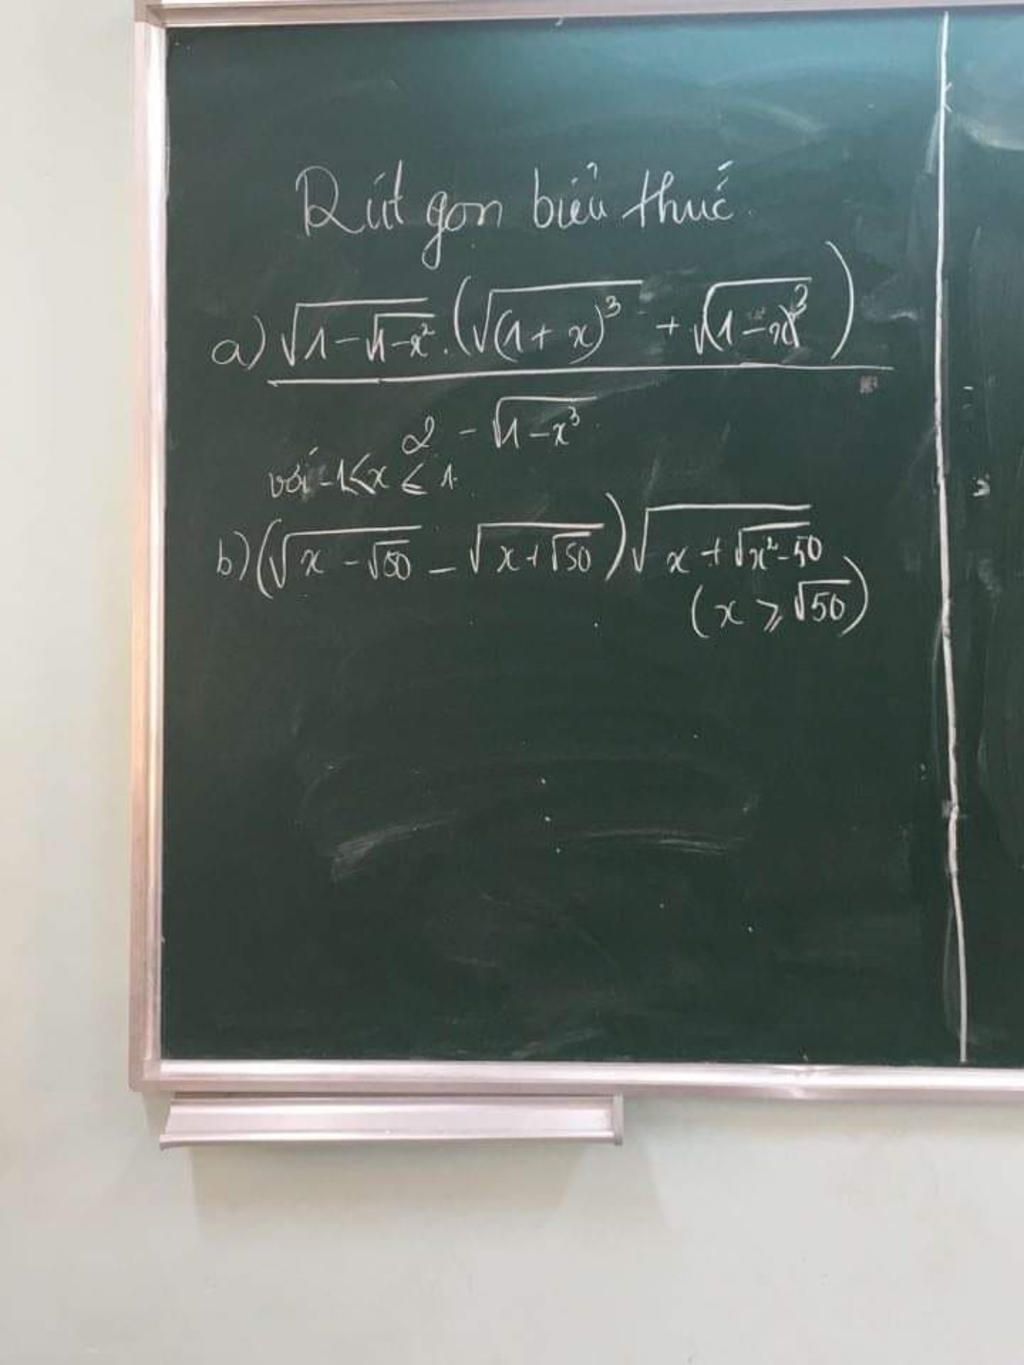 Rút gọn biểu thức
a) √(1-√(1-x²)) . (√((1+x)³) + √((1-x)³))
2 - √(1-x³)
với -1≤x≤1.
b) (√(x-√50) - √(x+√50)) √(x+√(x²-50))
(x ⩾ √50)